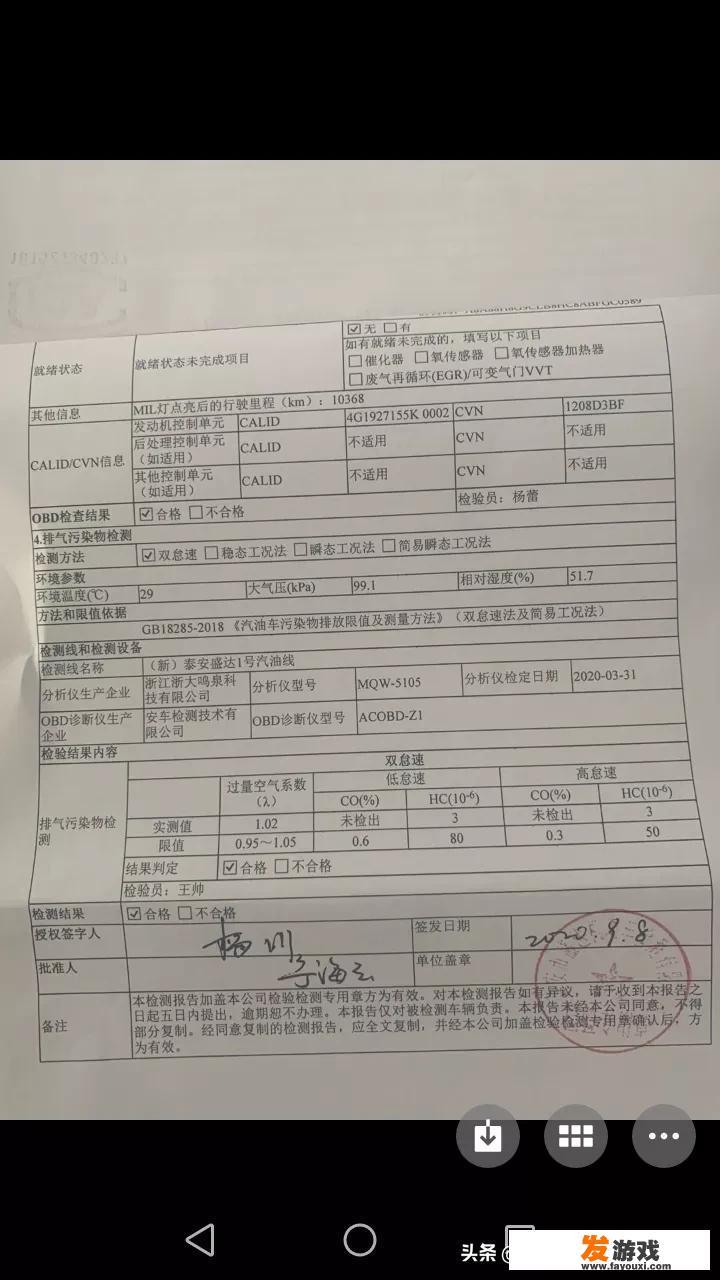 ☑无 ☐有
就绪状态 就绪状态未完成项目 如有就绪未完成的，填写以下项目
☐催化器 ☐氧传感器 ☐氧传感器加热器
☐废气再循环(EGR)/可变气门VVT
其他信息 MIL灯点亮后的行驶里程（km）：10368
CALID/CVN信息 发动机控制单元 CALID 4G1927155K 0002 CVN 1208D3BF
后处理控制单元（如适用） CALID 不适用 CVN 不适用
其他控制单元（如适用） CALID 不适用 CVN 不适用
OBD检查结果 ☑合格 ☐不合格 检验员：杨蕾
4.排气污染物检测
检测方法 ☑双怠速 ☐稳态工况法 ☐瞬态工况法 ☐简易瞬态工况法
环境参数
环境温度(℃) 29 大气压(kPa) 99.1 相对湿度(%) 51.7
方法和限值依据
GB18285-2018 《汽油车污染物排放限值及测量方法》（双怠速法及简易工况法）
检测线和检测设备
检测线名称 （新）泰安盛达1号汽油线
分析仪生产企业 浙江浙大鸣泉科技有限公司 分析仪型号 MQW-5105 分析仪检定日期 2020-03-31
OBD诊断仪生产企业 安车检测技术有限公司 OBD诊断仪型号 ACOBD-Z1
检验结果内容
排气污染物检测 双怠速
过量空气系数（λ） 低怠速 高怠速
CO(%) HC(10-6) CO(%) HC(10-6)
实测值 1.02 未检出 3 未检出 3
限值 0.95～1.05 0.6 80 0.3 50
结果判定 ☑合格 ☐不合格
检验员：王帅
检测结果 ☑合格 ☐不合格
授权签字人 签发日期 2020.9.8
批准人 单位盖章
备注 本检测报告加盖本公司检验检测专用章方为有效。对本检测报告如有异议，请于收到本报告之
日起五日内提出，逾期恕不办理。本报告仅对被检测车辆负责。本报告未经本公司同意，不得
部分复制。经同意复制的检测报告，应全文复制，并经本公司加盖检验检测专用章确认后，方
为有效。
头条 @
发游戏
www.fayouxi.com